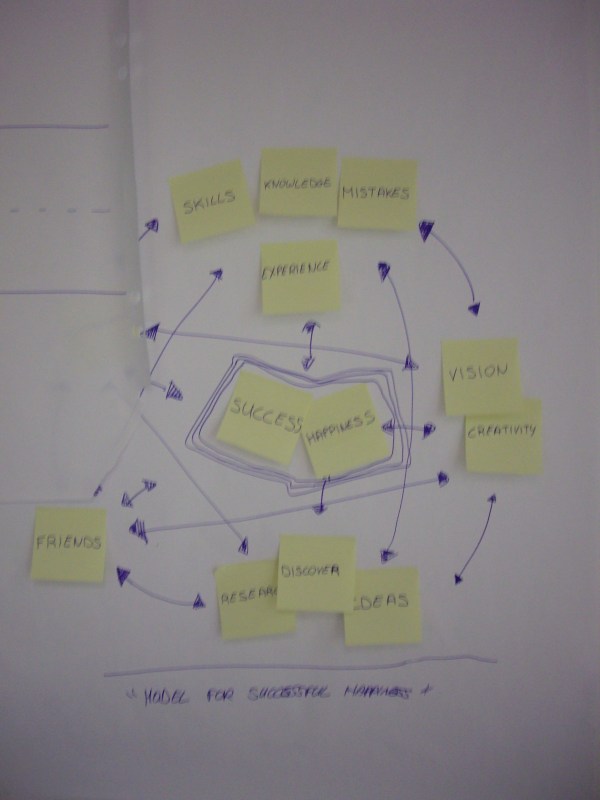 SKILLS
KNOWLEDGE
MISTAKES
EXPERIENCE
VISION
CREATIVITY
SUCCESS
HAPPINESS
FRIENDS
RESEAR
DISCOVER
IDEAS
"MODEL FOR SUCCESSFUL HAPPINESS"